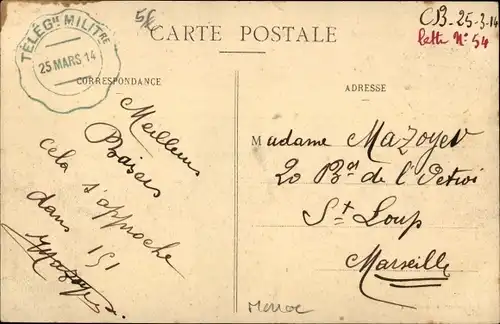 TÉLÉGIE MILITRE
25 MARS 14
CARTE POSTALE
CB-25-3-14
lettre N° 54
CORRESPONDANCE
ADRESSE
Meilleurs
Baisers
cela s'approche
dans 151
Mazoyer
Madame Mazoyer
20 Bd de l'Octroi
St Loup
Marseille
Maroc